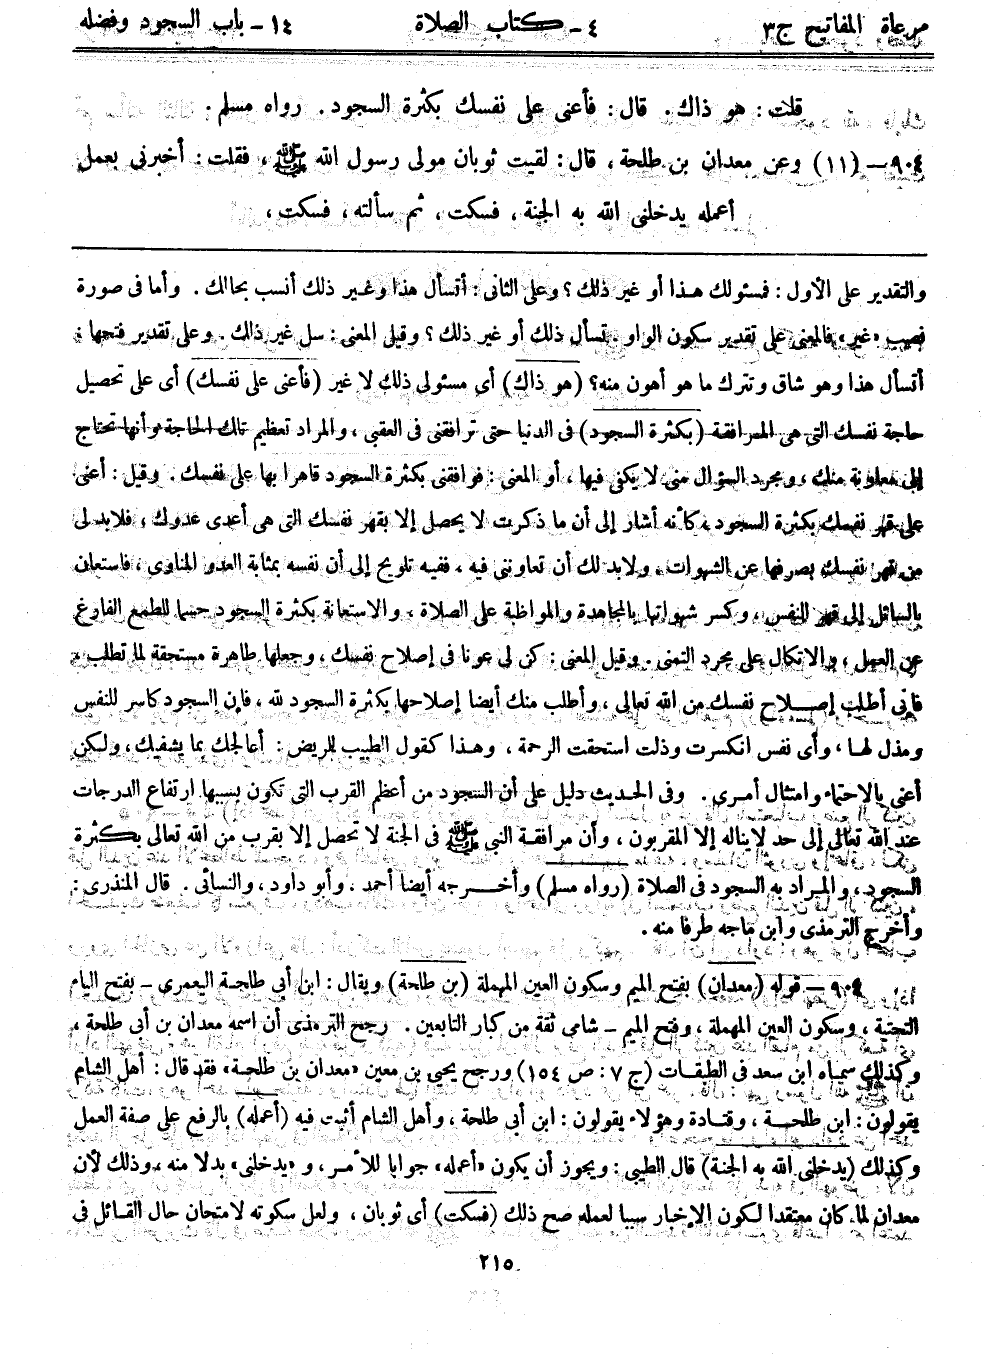 مرعاة المفاتيح ج٣
٤ – كتاب الصلاة
١٤ – باب السجود وفضله
قلت: هو ذاك. قال: فأعنى على نفسك بكثرة السجود. رواه مسلم.
٩٠٤ – (١١) وعن معدان بن طلحة، قال: لقيت ثوبان مولى رسول الله ﷺ، فقلت: أخبرنى بعمل
أعمله يدخلنى الله به الجنة، فسكت، ثم سألته، فسكت،
والتقدير على الأول: فمسئولك هذا أو غير ذلك؟ وعلى الثانى: أتسأل هذا وغير ذلك أنسب بحالك. وأما فى صورة
نصب «غير» فالمعنى على تقدير سكون الواو. تسأل ذلك أو غير ذلك؟ وقيل المعنى: سل غير ذلك. وعلى تقدير فتحها:
أتسأل هذا وهو شاق وتترك ما هو أهون منه؟ (هو ذاك) أى مسئولى ذلك لا غير (فأعنى على نفسك) أى على تحصيل
حاجة نفسك التى هى المرافقة (بكثرة السجود) فى الدنيا حتى ترافقنى فى العقبى، والمراد تعظيم تلك الحاجة وأنها تحتاج
إلى معاونة منك، ومجرد السؤال منى لا يكفى فيها، أو المعنى: فوافقنى بكثرة السجود قاهرا بها على نفسك. وقيل: أعنى
على قهر نفسك بكثرة السجود، كأنه أشار إلى أن ما ذكرت لا يحصل إلا بقهر نفسك التى هى أعدى عدوك، فلابد لى
من قهر نفسك بصرفها عن الشهوات، ولابد لك أن تعاوننى فيه، ففيه تلويح إلى أن نفسه بمثابة العدو المناوى، فاستعان
بالسائل إلى قهر النفس، وكسر شهواتها بالمجاهدة والمواظبة على الصلاة، والاستعانة بكثرة السجود حسما للطمع الفارغ
عن العمل، والاتكال على مجرد التمنى. وقيل المعنى: كن لى عونا فى إصلاح نفسك، وجعلها طاهرة مستحقة لما تطلب،
فإنى أطلب إصلاح نفسك من الله تعالى، وأطلب منك أيضا إصلاحها بكثرة السجود لله، فإن السجود كاسر للنفس
ومذل لها، وأى نفس انكسرت وذلت استحقت الرحمة، وهذا كقول الطبيب للمريض: أعالجك بما يشفيك، ولكن
أعنى بالاحتماء وامتثال أمرى. وفى الحديث دليل على أن السجود من أعظم القرب التى تكون بسببها ارتفاع الدرجات
عند الله تعالى إلى حد لا يناله إلا المقربون، وأن مرافقة النبى ﷺ فى الجنة لا تحصل إلا بقرب من الله تعالى بكثرة
السجود، والمراد به السجود فى الصلاة (رواه مسلم) وأخرجه أيضا أحمد، وأبو داود، والنسائى. قال المنذرى:
وأخرج الترمذى وابن ماجه طرفا منه.
٩٠٤ – قوله (معدان) بفتح الميم وسكون العين المهملة (بن طلحة) ويقال: ابن أبى طلحة اليعمري – بفتح الياء
التحتية، وسكون العين المهملة، وفتح الميم – شامى ثقة من كبار التابعين. رجح الترمذى أن اسمه معدان بن أبى طلحة،
وكذلك سماه ابن سعد فى الطبقات (ج ٧: ص ١٥٤) ورجح يحيى بن معين «معدان بن طلحة» فقد قال: أهل الشام
يقولون: ابن طلحة، وقتادة وهؤلاء يقولون: ابن أبى طلحة، وأهل الشام أثبت فيه (أعمله) بالرفع على صفة العمل
وكذلك (يدخلنى الله به الجنة) قال الطيبى: ويجوز أن يكون «أعمله» جوابا للأمر، و «يدخلنى» بدلا منه، وذلك لأن
معدان لما كان معتقدا لكون الإخبار سببا لعمله صح ذلك (فسكت) أى ثوبان، ولعل سكوته لامتحان حال القائل فى
٢١٥